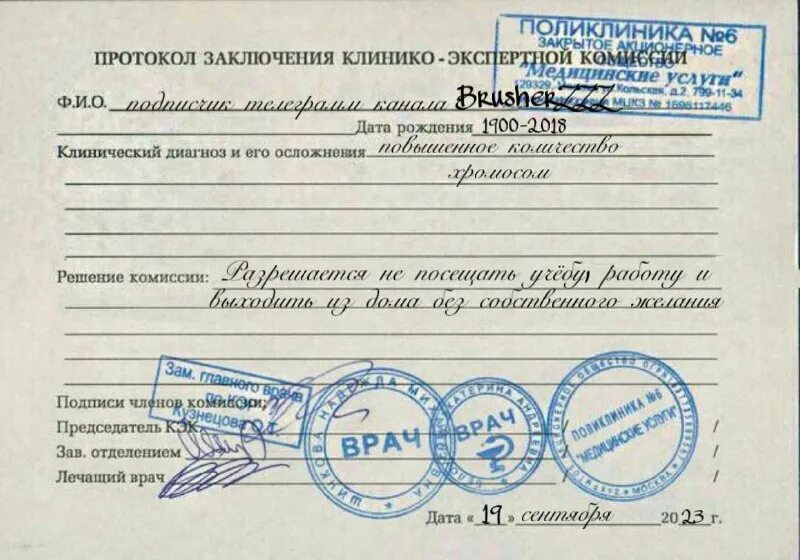 ПОЛИКЛИНИКА №6
ЗАКРЫТОЕ АКЦИОНЕРНОЕ
ОБЩЕСТВО
"Медицинские услуги"
Кольская, д.2, 799-11-34
ПРОТОКОЛ ЗАКЛЮЧЕНИЯ КЛИНИКО-ЭКСПЕРТНОЙ КОМИССИИ
Ф.И.О. подписчик телеграмм канала BrusherZZZ
Дата рождения 1900-2018
Клинический диагноз и его осложнения повышенное количество
хромосом
Решение комиссии: Разрешается не посещать учёбу, работу и
выходить из дома без собственного желания
Зам. главного врача
по КЭР
Кузнецова О.Г.
Подписи членов комиссии:
Председатель КЭК / /
Зав. отделением / /
Лечащий врач / /
НАДЕЖДА
ВРАЧ
ЕКАТЕРИНА АНДРЕЕВНА
ВРАЧ
ПОЛИКЛИНИКА №6
"МЕДИЦИНСКИЕ УСЛУГИ"
МОСКВА
Дата «19» сентября 2023 г.